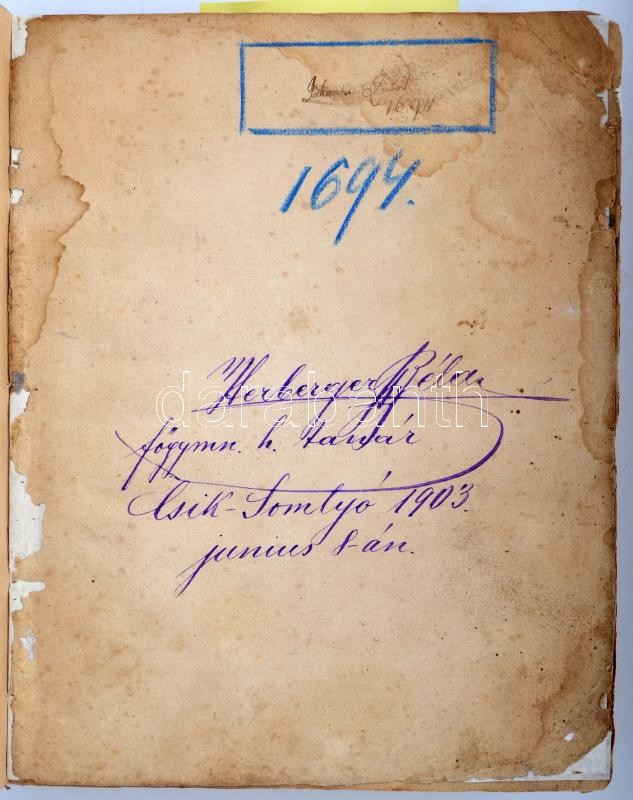 1694
1694.
Herberger Béla
főgymn. h. tanár
Csik-Somlyó 1903.
junius 8-án.
darabanth